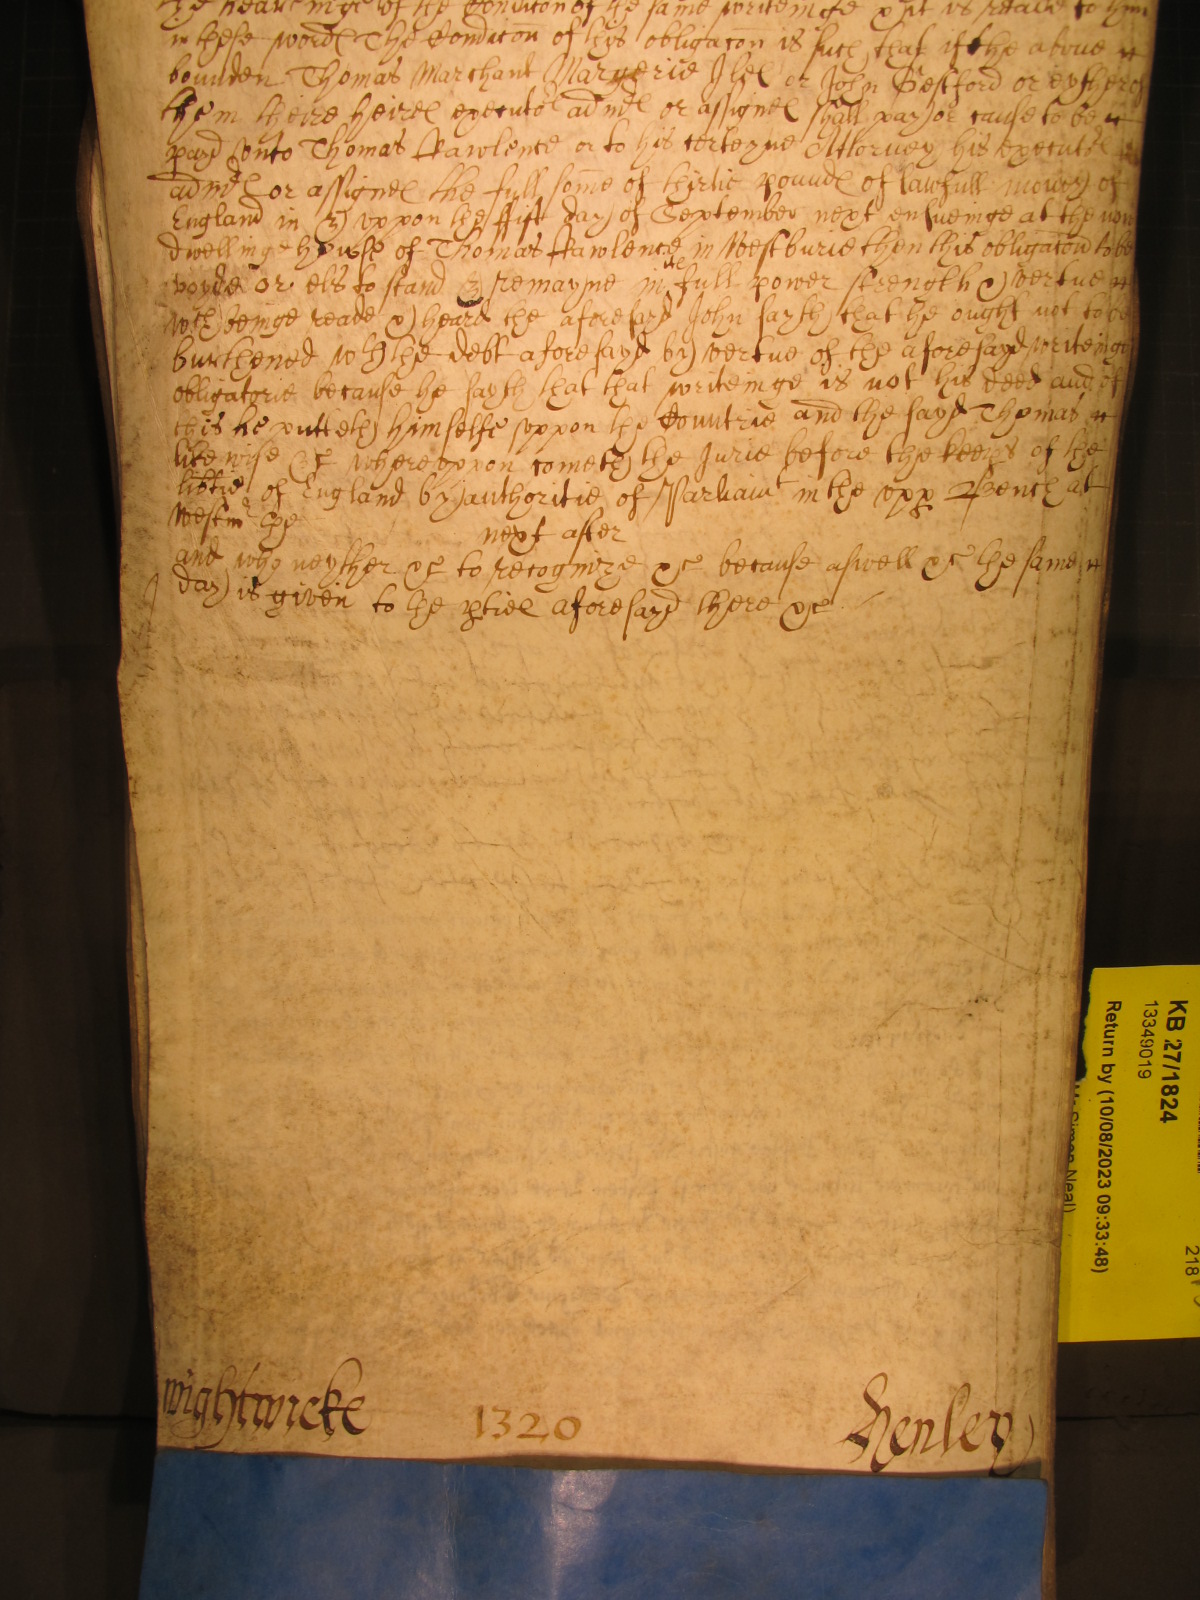 the hearinge of the Condicon of the same writeinge & it is reade to him
in these wordes The Condicon of this obligacon is such that if the above
bounden Thomas Marchant Margerie Iles or John Bestford or eyther of
them theire heires executors admrs or assignes shall pay or cause to be
payd unto Thomas Rawlence or to his certeyne Attorney his executors
admrs or assignes the full some of thirtie poundes of lawfull money of
England in & uppon the first day of September next ensueinge at the now
dwellinge house of Thomas Rawlence in Westburie then this obligacon to be
voyde or els to stand & remayne in the full power strength & vertue
wch beinge reade & heard the aforesayd John sayth that he ought not to be
burthened wth the debt aforesayd by vertue of the aforesayd writeinge
obligatorie because he sayth that that writeinge is not his deed and of
this he putteth himselfe uppon the Countrie and the sayd Thomas
likewise &c whereuppon cometh the Jurie before the keeps of the
libtie of England by authoritie of Parliamt in the upp Bench at
Westmr the next after
and who neyther &c to recognize &c because aswell &c the same
day is given to the pties aforesayd there &c
Wightwicke 1320 Henley
KB 27/1824
13349019
Return by (10/08/2023 09:33:48)
Mr Simon Neal)
218